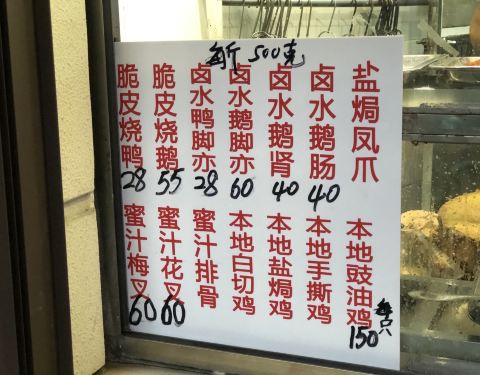 每斤500克
脆皮烧鸭
28
脆皮烧鹅
55
卤水鸭脚亦
28
卤水鹅脚亦
60
卤水鹅肾
40
卤水鹅肠
40
盐焗凤爪
蜜汁梅叉
60
蜜汁花叉
60
蜜汁排骨
本地白切鸡
本地盐焗鸡
本地手撕鸡
本地豉油鸡
每只
150